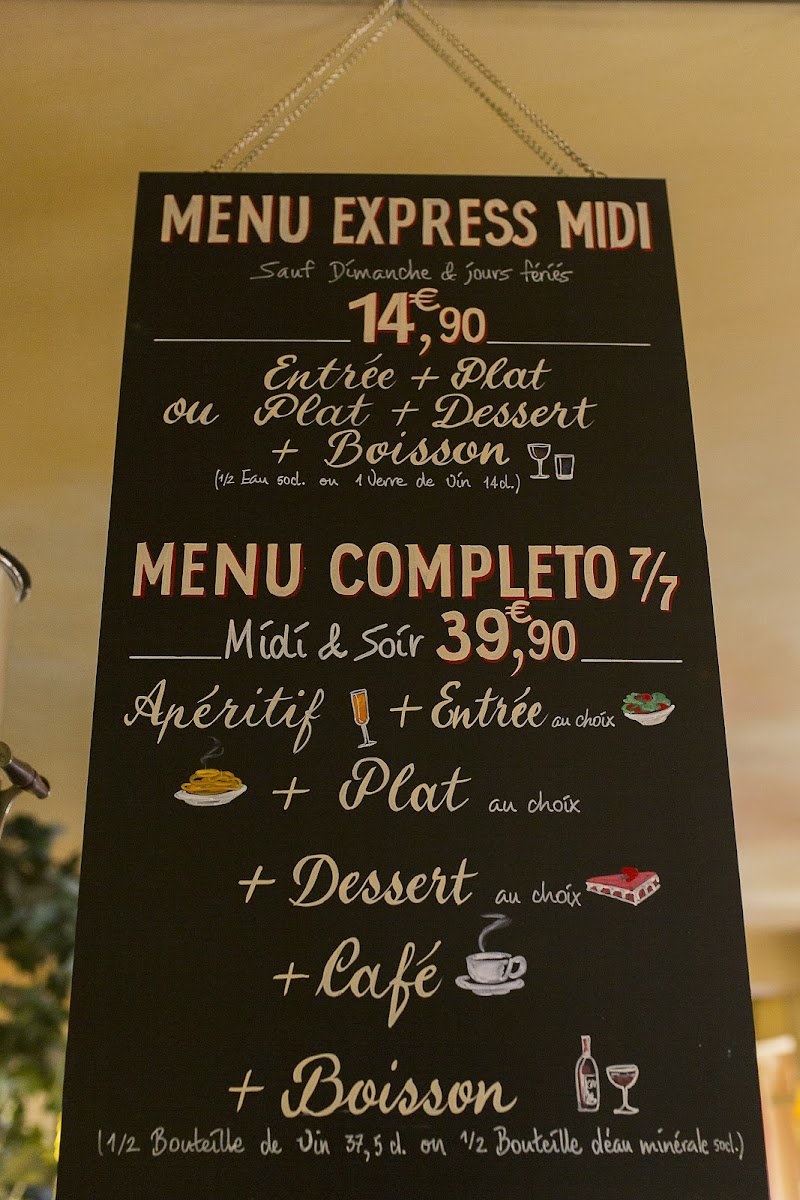 MENU EXPRESS MIDI
Sauf Dimanche & jours fériés
14€,90
Entrée + Plat
ou Plat + Dessert
+ Boisson
(1/2 Eau 50cl. ou 1 Verre de vin 14cl.)
MENU COMPLETO 7/7
Midi & Soir 39€,90
Apéritif + Entrée au choix
+ Plat au choix
+ Dessert au choix
+ Café
+ Boisson
(1/2 Bouteille de vin 37,5 cl. ou 1/2 Bouteille d'eau minérale 50cl.)